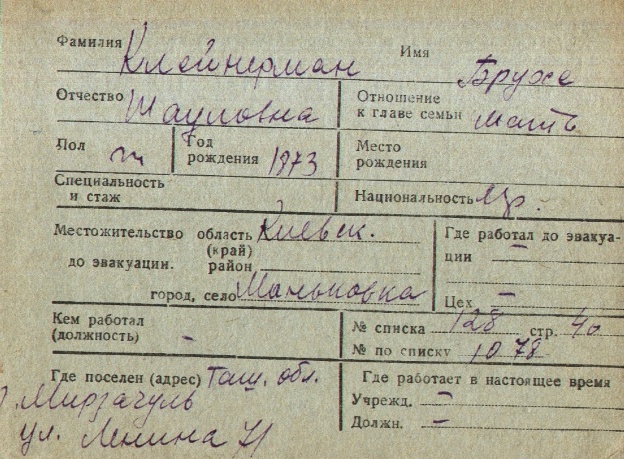 Фамилия Клейнерман Имя Брухе
Отчество Шауловна Отношение к главе семьи мать
Пол ж Год рождения 1873 Место рождения
Специальность и стаж Национальность евр.
Местожительство до эвакуации. область (край) Киевск.
район
город, село Маньковка
Где работал до эвакуации –
Цех –
Кем работал (должность) –
№ списка 128 стр. 40
№ по списку 1078
Где поселен (адрес) Таш. обл.
Мирзачуль
ул. Ленина 71
Где работает в настоящее время
Учрежд. –
Должн. –